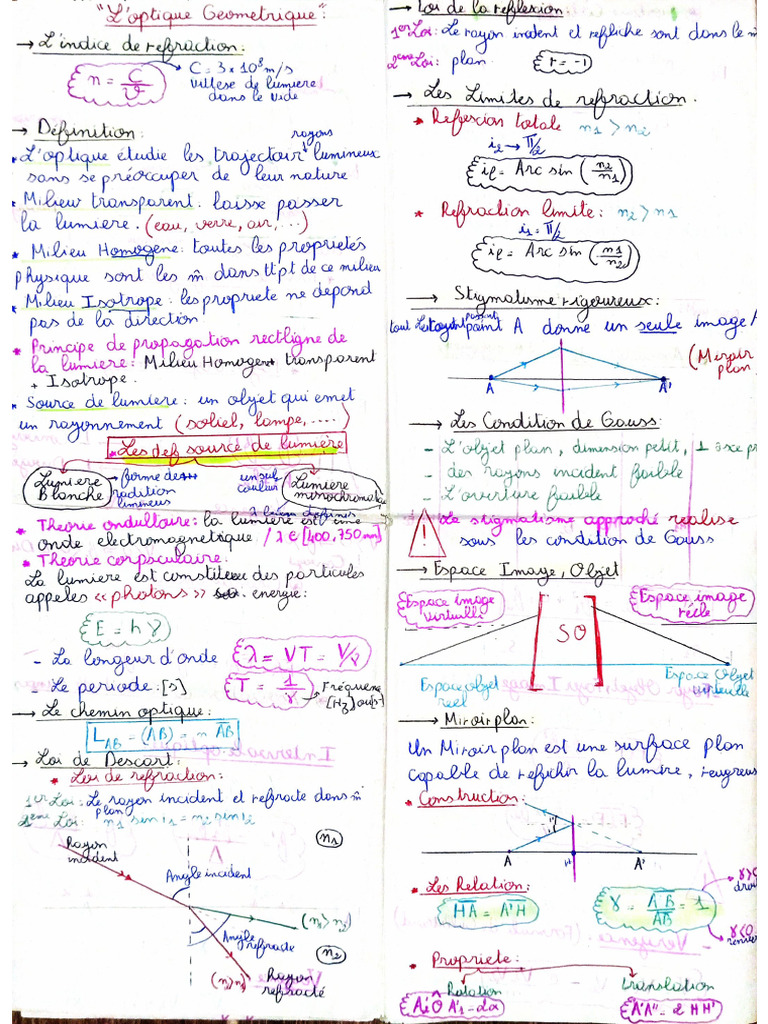 "L'optique Geometrique":
→ L'indice de refraction:
n = C/v
C = 3 × 10⁸ m/s
vitesse de lumiere
dans le vide
→ Définition:
rayons
* L'optique étudie les trajectoir lumineux
sans se préoccuper de leur nature
* Milieu transparent: laisse passer
la lumiere. (eau, verre, air, ...)
* Milieu Homogene: toutes les proprietés
physique sont les m̂ dans tt pt de ce milieu
* Milieu Isotrope: les propriete ne dépend
pas de la direction
* Principe de propagation rectligne de
la lumiere: Milieu Homogen + transparent
+ Isotrope.
* Source de lumiere: un objet qui emet
un rayonnement (soliel, lampe, ....)
* Les def source de lumière
Lumiere
Blanche
→ forme des +++
radition
lumineux
un seul
couleur
Lumiere
monochromatique
* Theorie ondultaire: la lumiere est une
onde electromagnetique / λ ∈ [400, 750 nm]
* Theorie corpsculaire:
La lumiere est constituee des particules
appeles «photons» energie:
E = h γ
- La longeur d'onde λ = VT = V/γ
- Le periode: [s] T = 1/γ
→ Fréquence
[Hz]
→ Le chemin optique:
L_AB = (AB) = n AB
→ Loi de Descart:
* Loi de refraction:
1er Loi: Le rayon incident et refracte dans m̂
plan
2eme Loi: n1 sin i1 = n2 sin i2
Rayon
incident
Angle incident
n1
(n1 > n2)
Angle
refracte
n2
Rayon
refracté
→ Loi de la reflexion
1er Loi: Le rayon incident et refliche sont dans le m̂
2eme Loi: plan. r = -i
→ Les Limites de refraction.
* Reflexion totale n1 > n2
i2 → π/2
il = Arc sin (n2/n1)
* Refraction limite: n2 > n1
i1 = π/2
il = Arc sin (n1/n2)
→ Stigmatisme rigoureux:
point A donne un seule image A
A
A'
(Miroir
plan
→ Les Condition de Gauss:
- L'objet plan, dimension petit, ⊥ axe pr
- des rayons incident faible
- L'overture faible
! Le stigmatisme approché realise
sous les condition de Gauss
→ Espace Image, Objet
Espace image
virtuelle
SO
Espace image
réele
Espace objet
reel
Espace Objet
virtuelle
→ Miroir plan:
Un Miroir plan est une surface plan
capable de reflichir la lumiere, reugreus
* Construction:
A
H
A'
* Les Relation:
HA = A'H
γ = A'B'/AB = 1
γ>0
droit
γ<0
renver
* Propriete:
Rotation
translation
A'A'' = 2 HH'